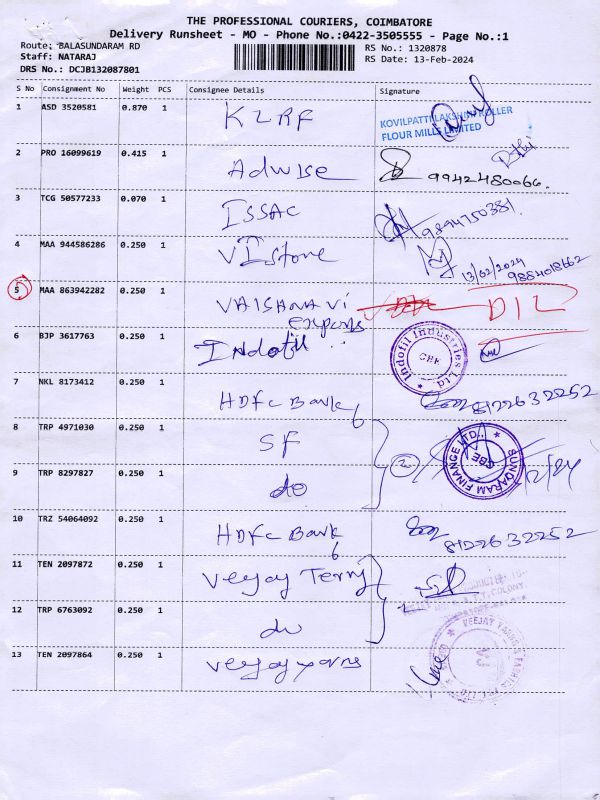 THE PROFESSIONAL COURIERS, COIMBATORE
Delivery Runsheet - MO - Phone No.:0422-3505555 - Page No.:1
Route: BALASUNDARAM RD RS No.: 1320878
Staff: NATARAJ RS Date: 13-Feb-2024
DRS No.: DCJB132087801
S No Consignment No Weight PCS Consignee Details Signature
1 ASD 3520581 0.870 1 KLRF
KOVILPATTI LAKSHMI ROLLER
FLOUR MILLS LIMITED
2 PRO 16099619 0.415 1 Adwise 9942480066.
3 TCG 50577233 0.070 1 ISSAC 9894750381.
4 MAA 944586286 0.250 1 VIstone 13/02/2024
9884018662
5 MAA 863942282 0.250 1 VAISHNAVI
exports
6 BJP 3617763 0.250 1 Indofil Indofil Industries Ltd CBE
7 NKL 8173412 0.250 1 HDFC Bank 6 8122632252
8 TRP 4971030 0.250 1 SF 2 SUNDARAM FINANCE LTD., CBE
9 TRP 8297827 0.250 1 do
10 TRZ 54064092 0.250 1 HDFC Bank 6 8122632252
11 TEN 2097872 0.250 1 Veejay Terry
12 TRP 6763092 0.250 1 do
13 TEN 2097864 0.250 1 veejay yarns VEEJAY YARNS